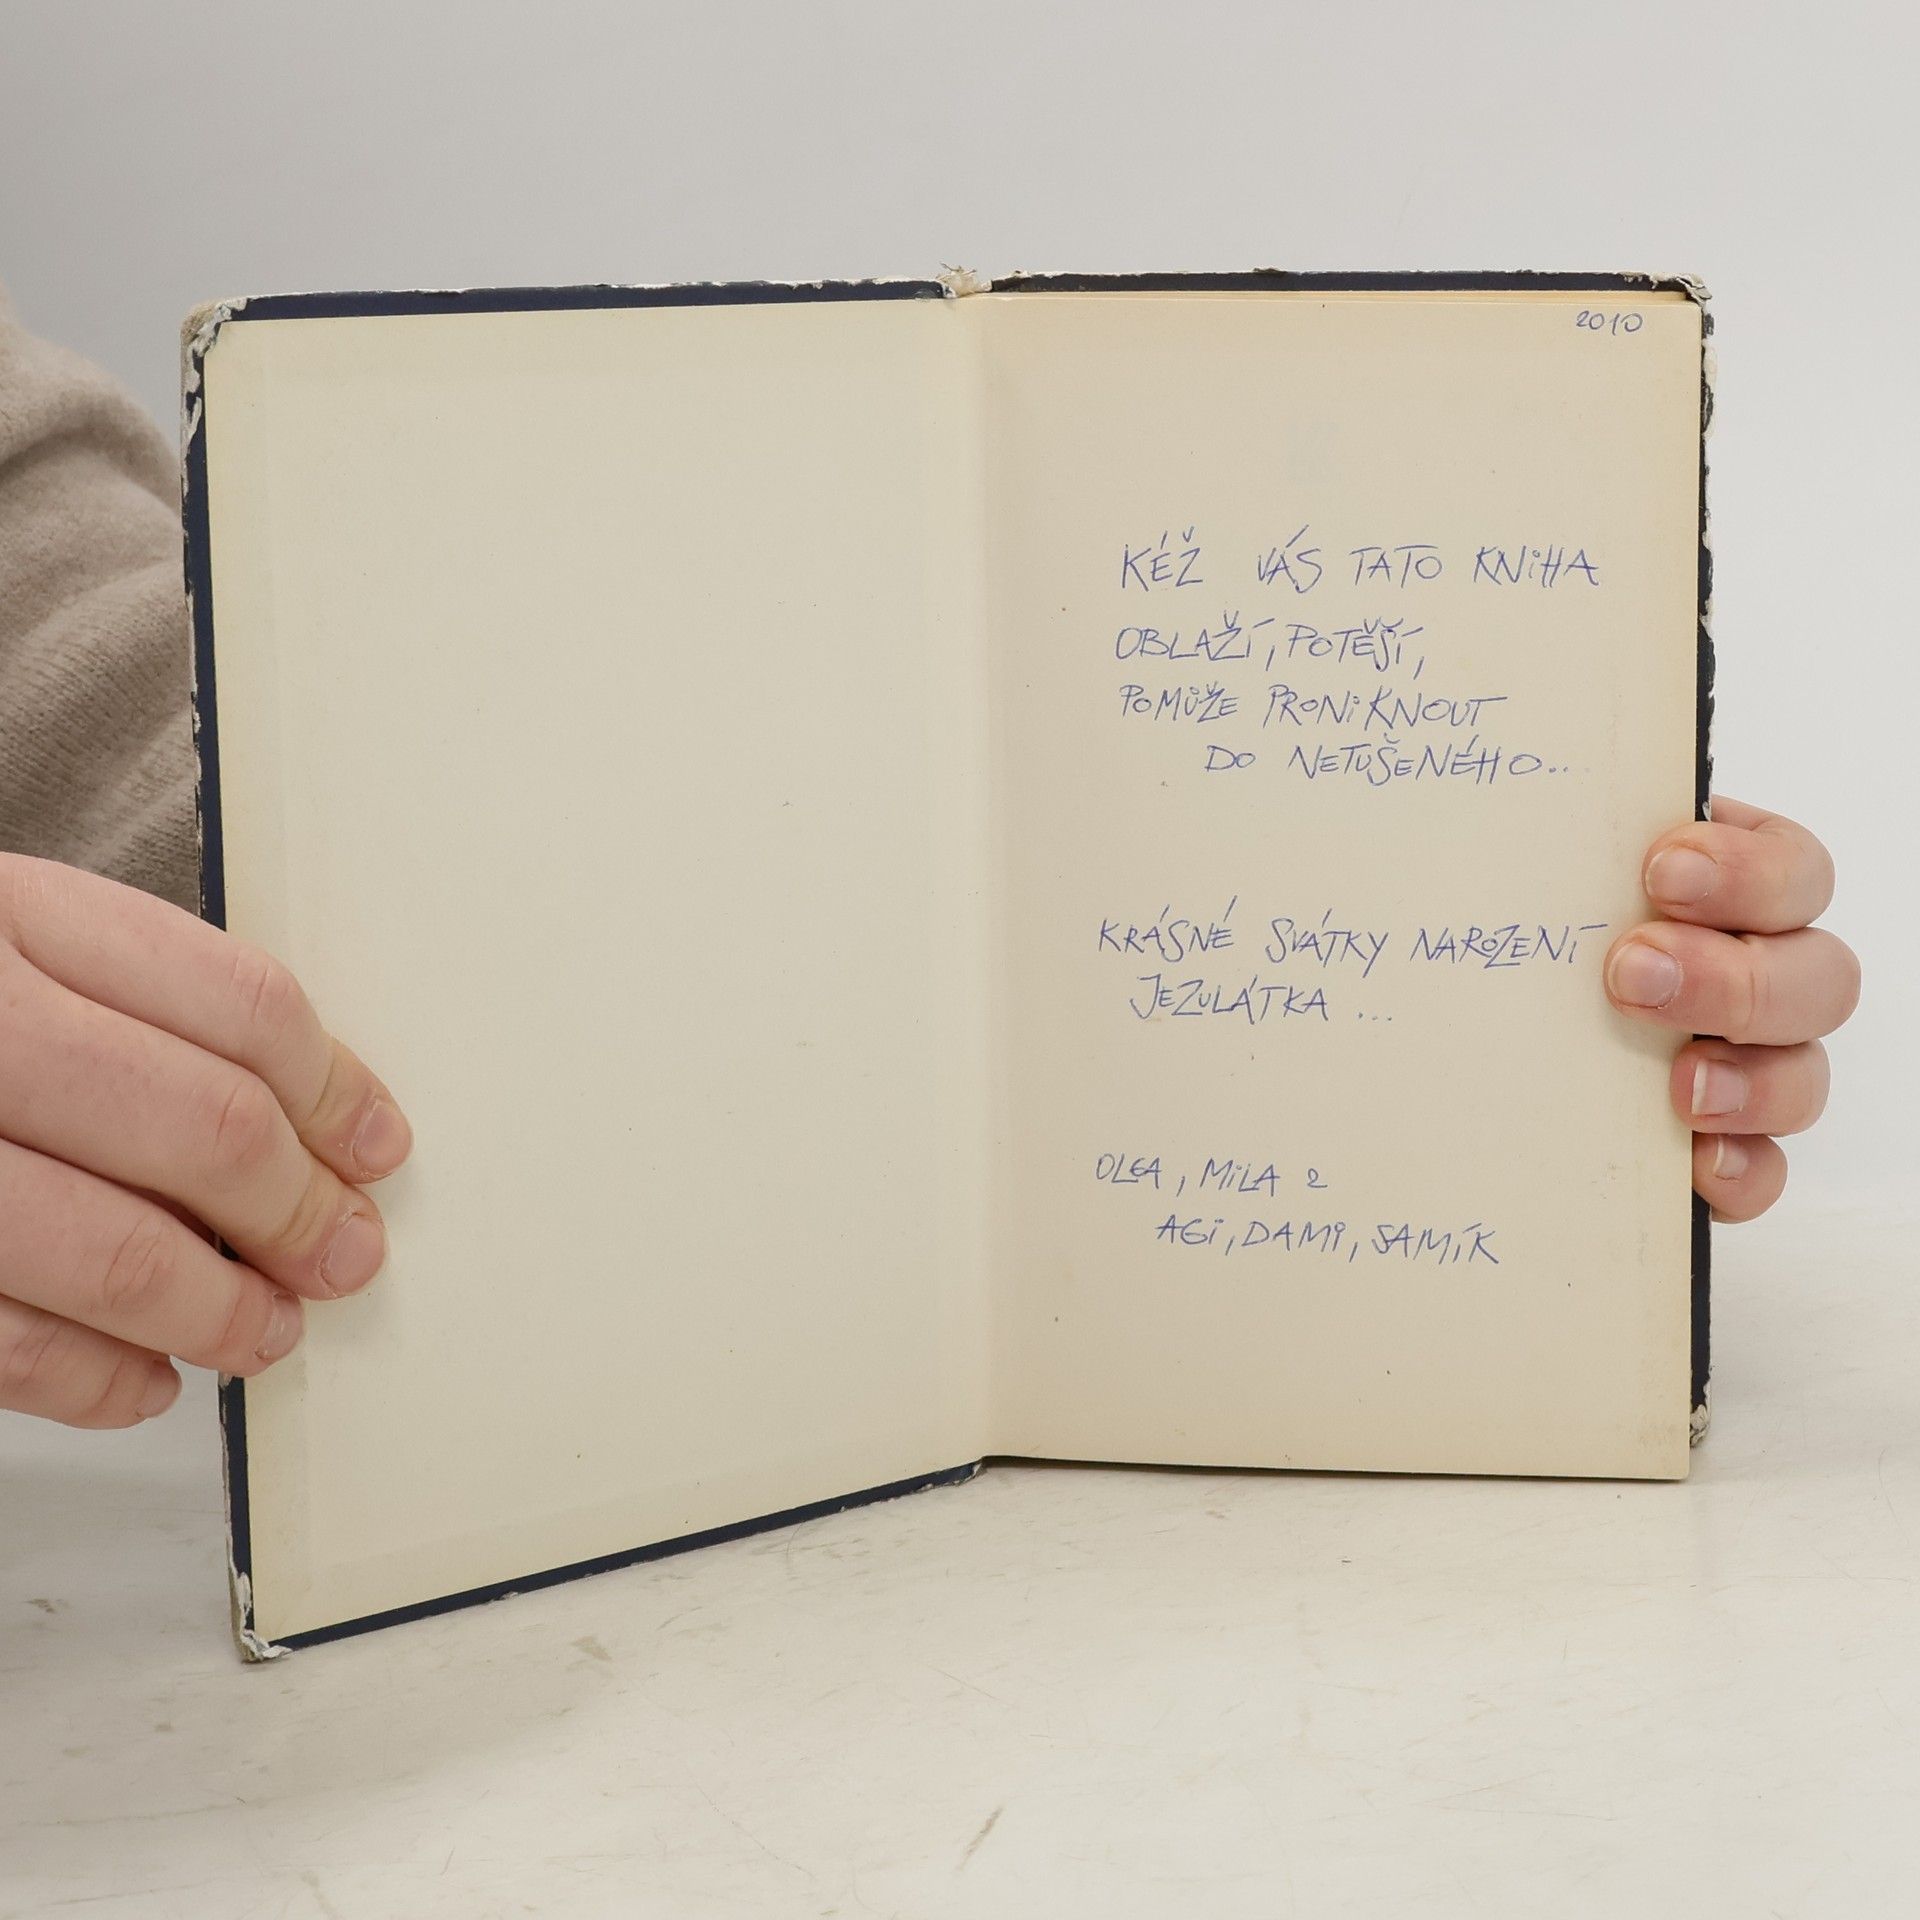 2010
KÉŽ VÁS TATO KNiHA
OBLAŽÍ, POTĚŠÍ,
POMŮŽE PRONiKNOUT
DO NETUŠENÉHO...
KRÁSNÉ SVÁTKY NAROZENÍ
JEZULÁTKA ...
OLGA, MiLA 2
AGi, DAMi, SAMÍK